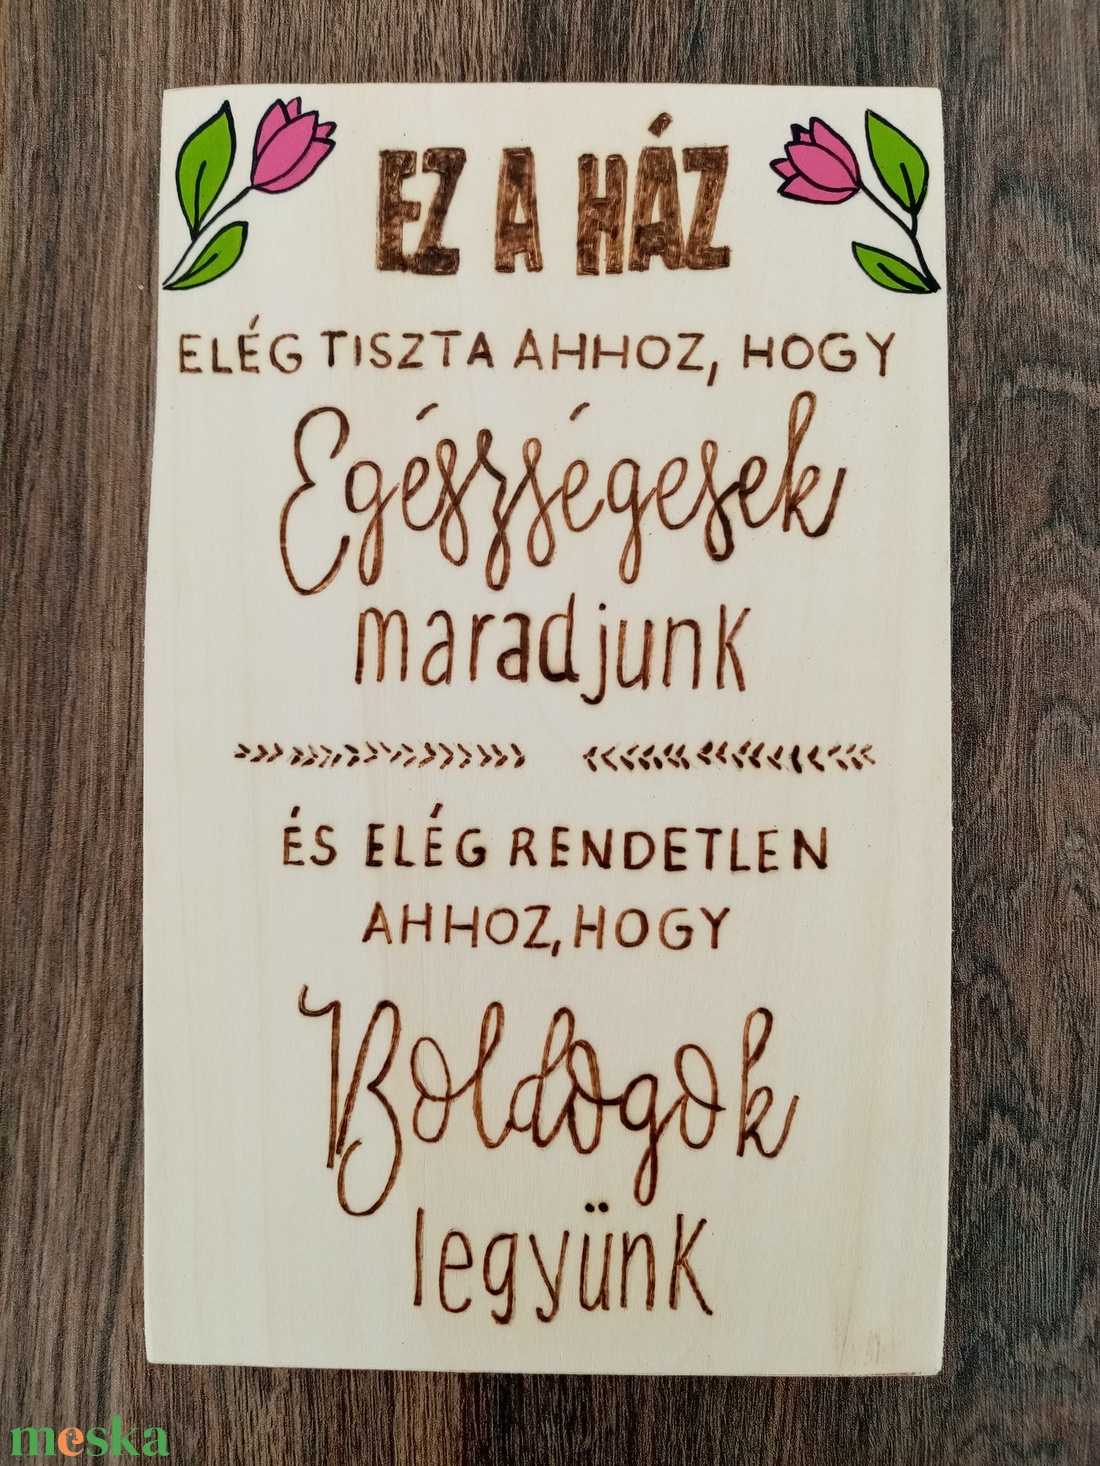 EZ A HÁZ
ELÉG TISZTA AHHOZ, HOGY
Egészségesek
maradjunk
ÉS ELÉG RENDETLEN
AHHOZ, HOGY
Boldogok
legyünk
meska